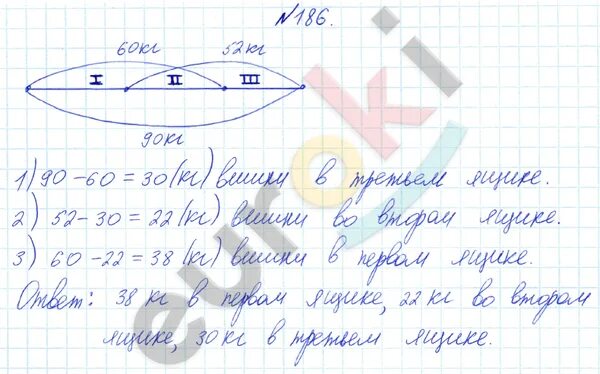 №186.
60кг 52кг
I II III
90кг
1) 90-60=30(кг) вишни в третьем ящике.
2) 52-30=22(кг) вишни во втором ящике.
3) 60-22=38(кг) вишни в первом ящике.
Ответ: 38 кг в первом ящике, 22 кг во втором
ящике, 30 кг в третьем ящике.
euroki